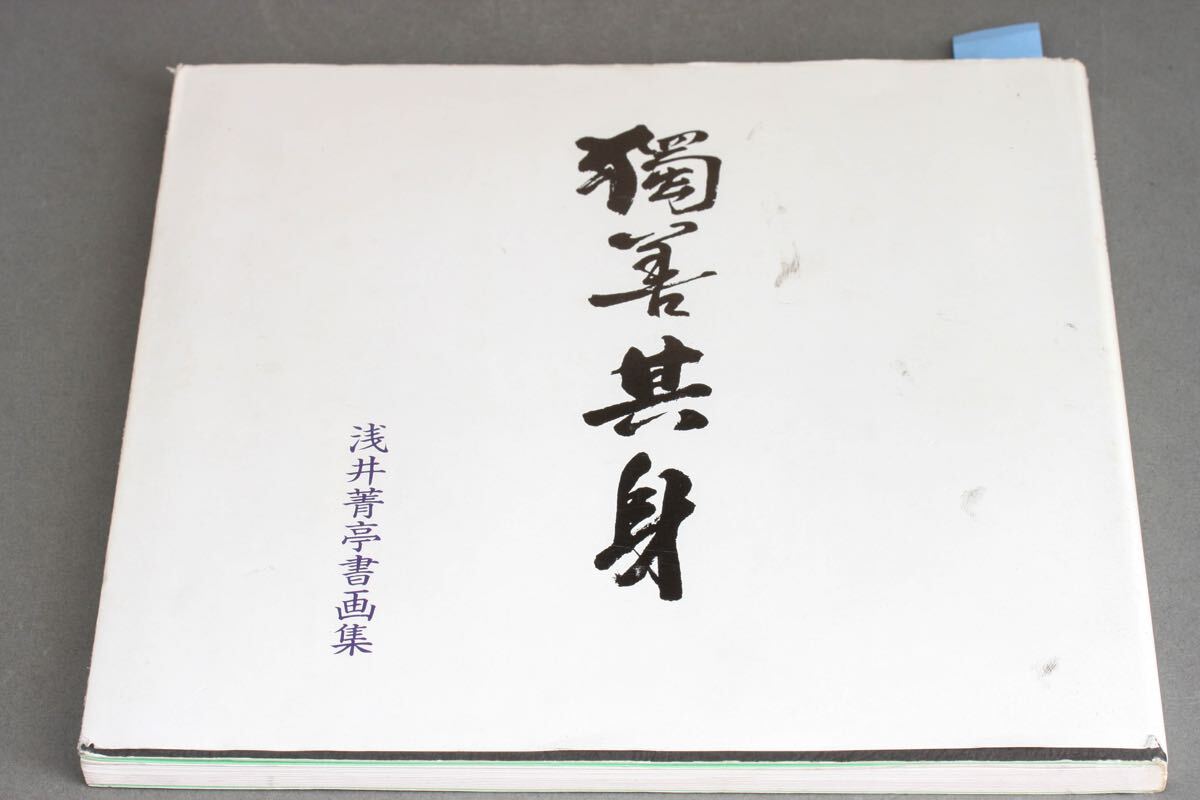 獨善其身
浅井菁亭書画集